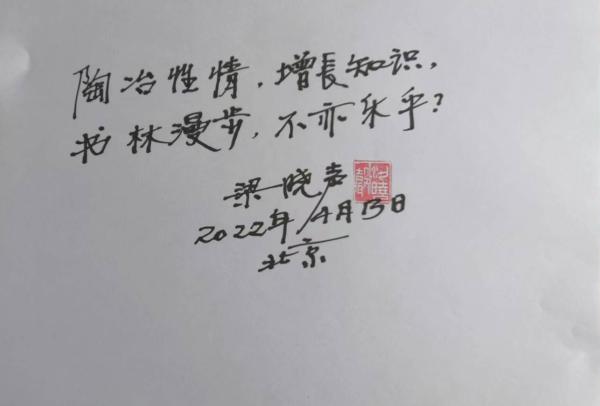 陶冶性情，增長知识，
书林漫步，不亦乐乎？
梁晓声
2022年4月13日
北京